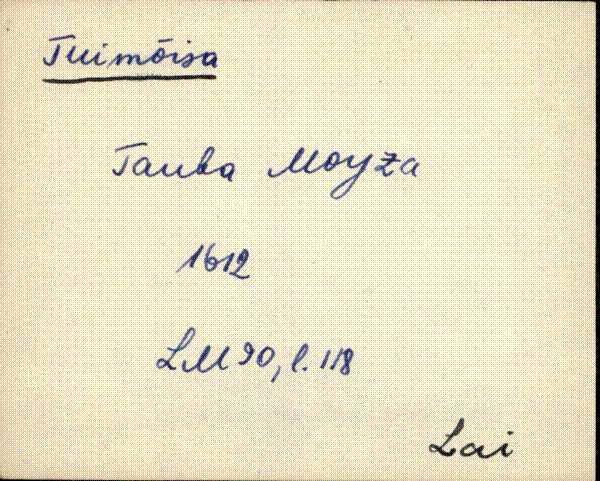 Tuimõisa
Tauba Moyża
1612
LM 90, l. 118
Lai